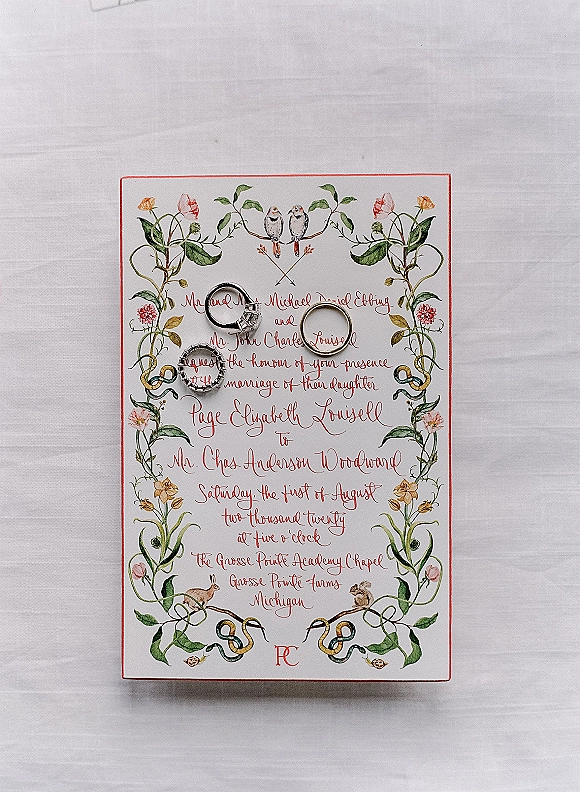 Mr and Mrs Michael David Ebbing
and
Mr John Charles Louisell
request the honour of your presence
at the marriage of their daughter
Page Elizabeth Louisell
To
Mr. Chas Anderson Woodward
Saturday, the first of August
two thousand twenty
at five o'clock
The Grosse Pointe Academy Chapel
Grosse Pointe Farms
Michigan
PC